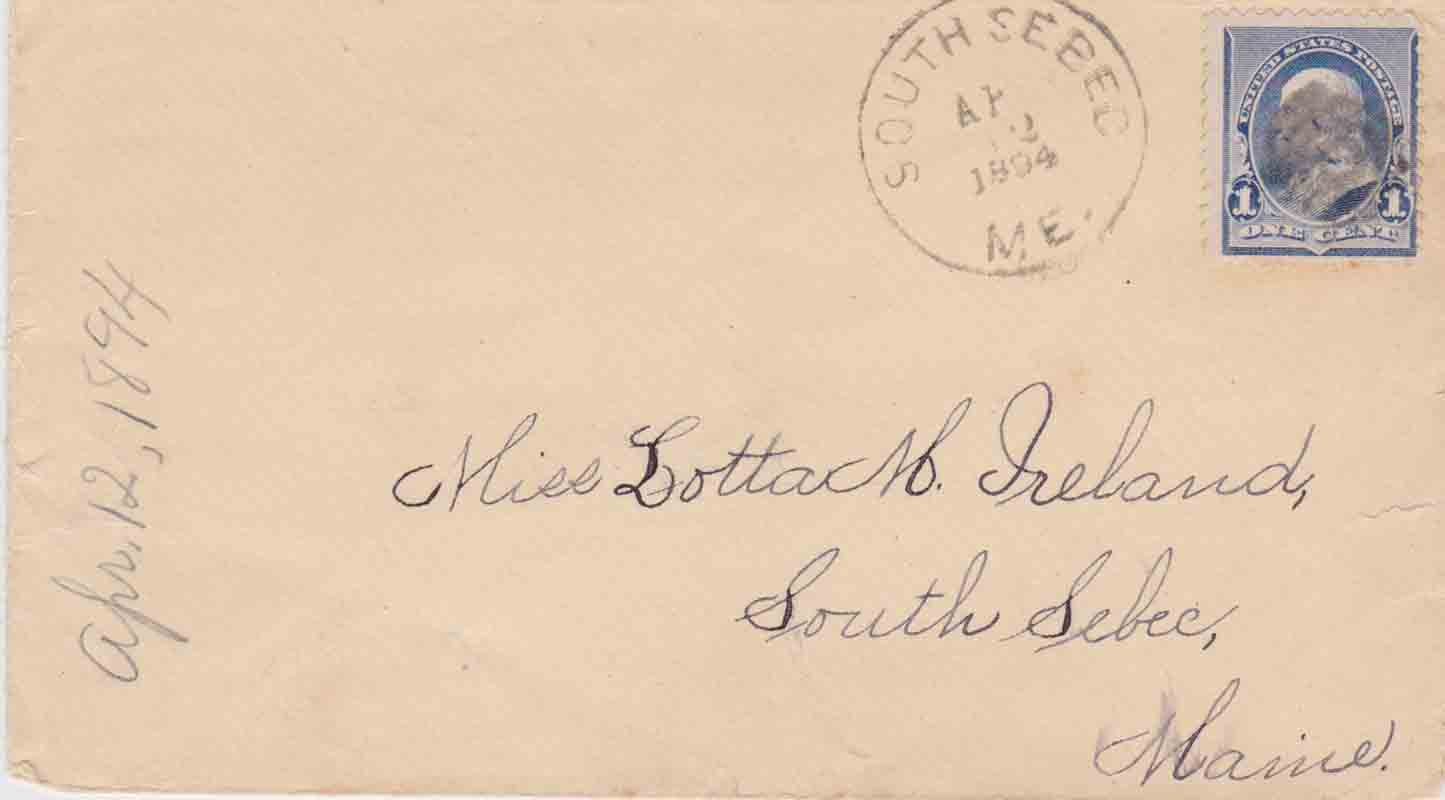 SOUTH SEBEC
AP
12
1894
ME.
UNITED STATES POSTAGE
1 1
ONE CENT
Apr. 12, 1894
Miss Lotta M. Ireland,
South Sebec,
Maine.